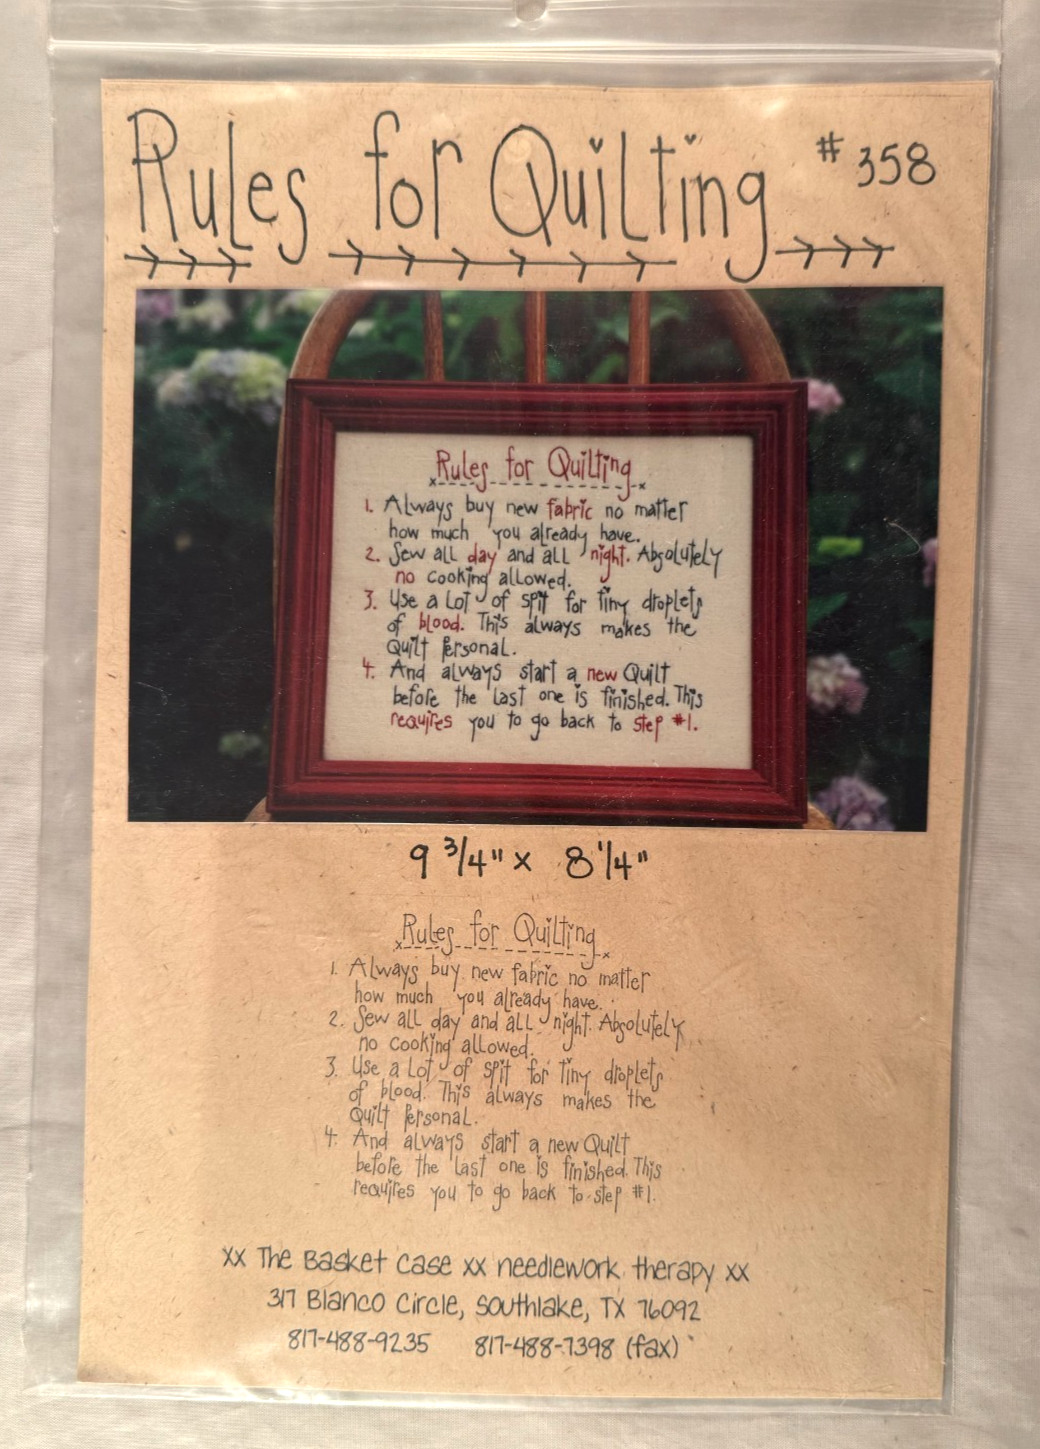 Rules for Quilting #358
Rules for Quilting
1. Always buy new fabric no matter
how much you already have.
2. Sew all day and all night. Absolutely
no cooking allowed.
3. Use a lot of spit for tiny droplets
of blood. This always makes the
Quilt Personal.
4. And always start a new Quilt
before the last one is finished. This
requires you to go back to step #1.
9 3/4" x 8 1/4"
Rules for Quilting
1. Always buy new fabric no matter
how much you already have.
2. Sew all day and all night. Absolutely
no cooking allowed.
3. Use a lot of spit for tiny droplets
of blood. This always makes the
Quilt Personal.
4. And always start a new Quilt
before the last one is finished. This
requires you to go back to step #1.
xx The Basket Case xx needlework therapy xx
317 Blanco Circle, Southlake, TX 76092
817-488-9235 817-488-7398 (fax)